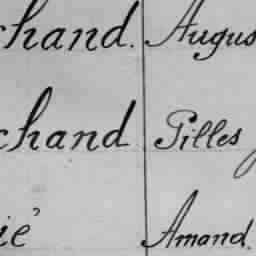 chand. Augus
chand Gilles
ié Amand.